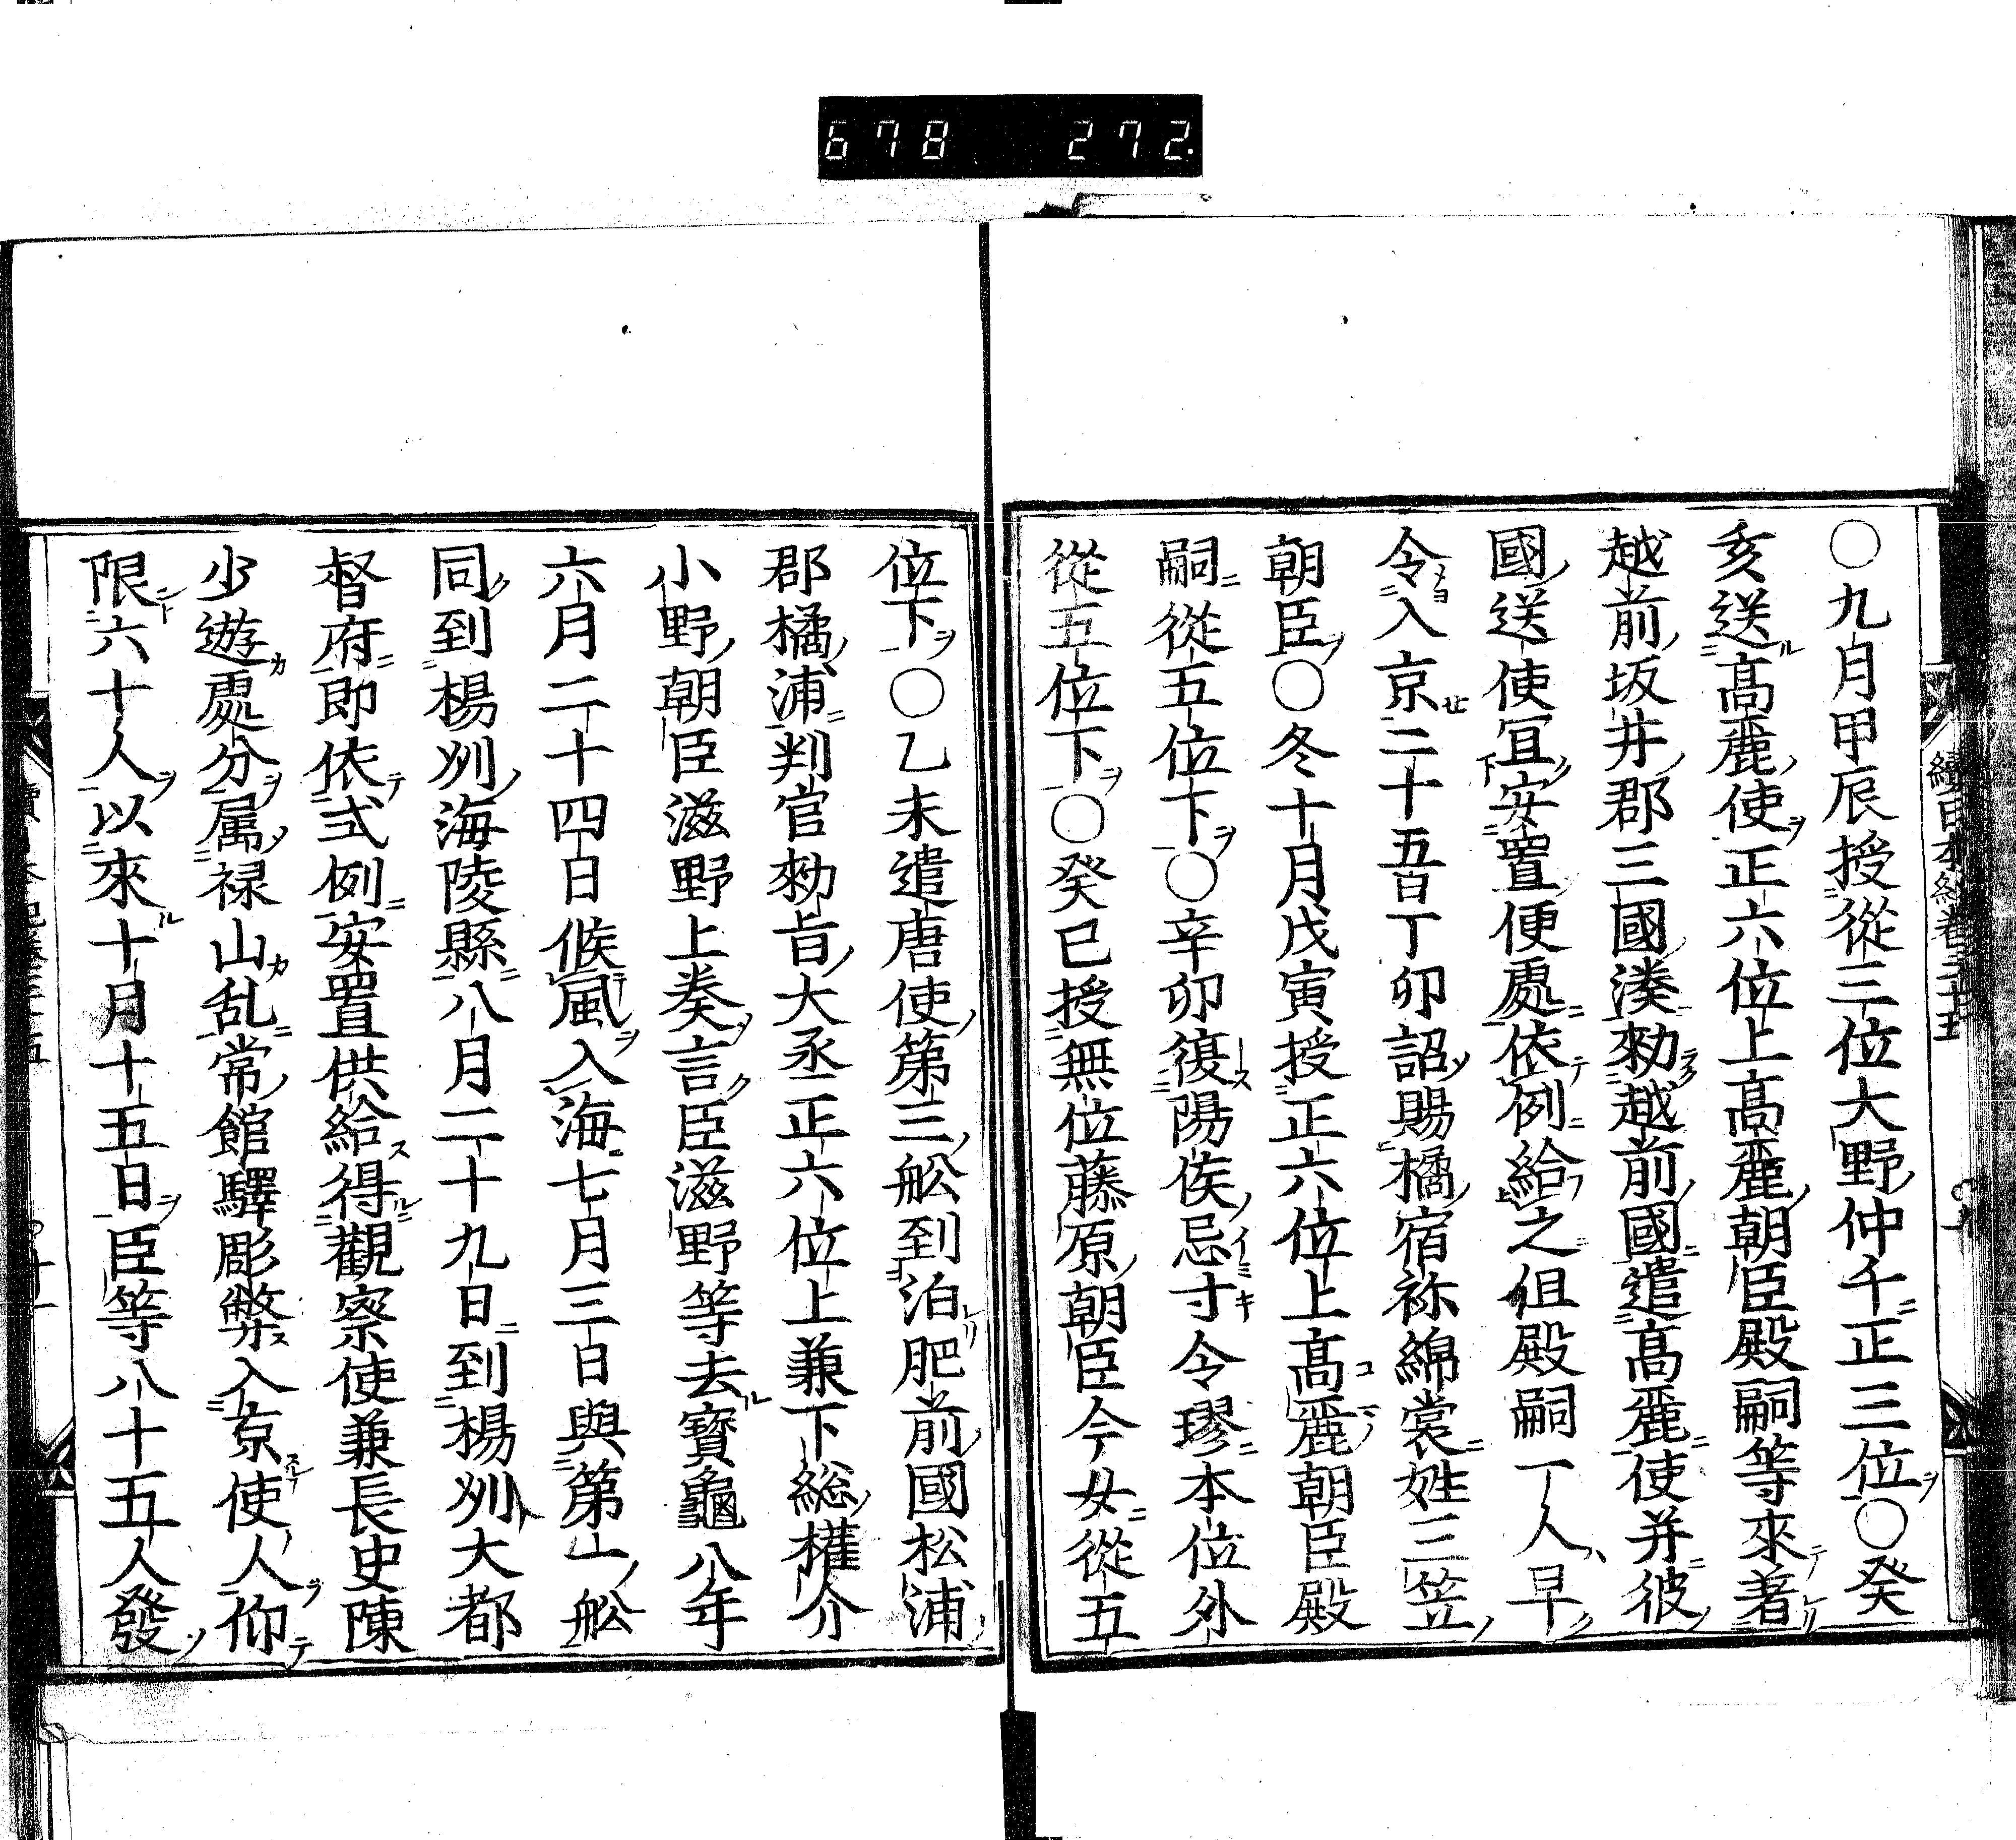 678 272.
○九月甲辰授從三位大野仲千正三位○癸
亥送高麗使正六位上高麗朝臣殿嗣等來著
越前坂井郡三國湊勑越前國遣高麗使并彼
國送使冝安置便處依例給之但殿嗣一人早
令入京二十五日丁卯詔賜橘宿祢綿裳姓三笠
朝臣○冬十月戊寅授正六位上高麗朝臣殿
嗣從五位下○辛卯復陽侯忌寸令璆本位外
從五位下○癸巳授無位藤原朝臣今女從五
位下○乙未遣唐使第三舩到泊肥前國松浦
郡橘浦判官勑旨大丞正六位上兼下総權介
小野朝臣滋野上奏言臣滋野等去寳龜八年
六月二十四日候風入海七月三日與第一舩
同到楊州海陵縣八月二十九日到楊州大都
督府即依式例安置供給得觀察使兼長史陳
少遊處分属禄山乱常館驛彫弊入京使人仰
限六十人以來十月十五日臣等八十五人發